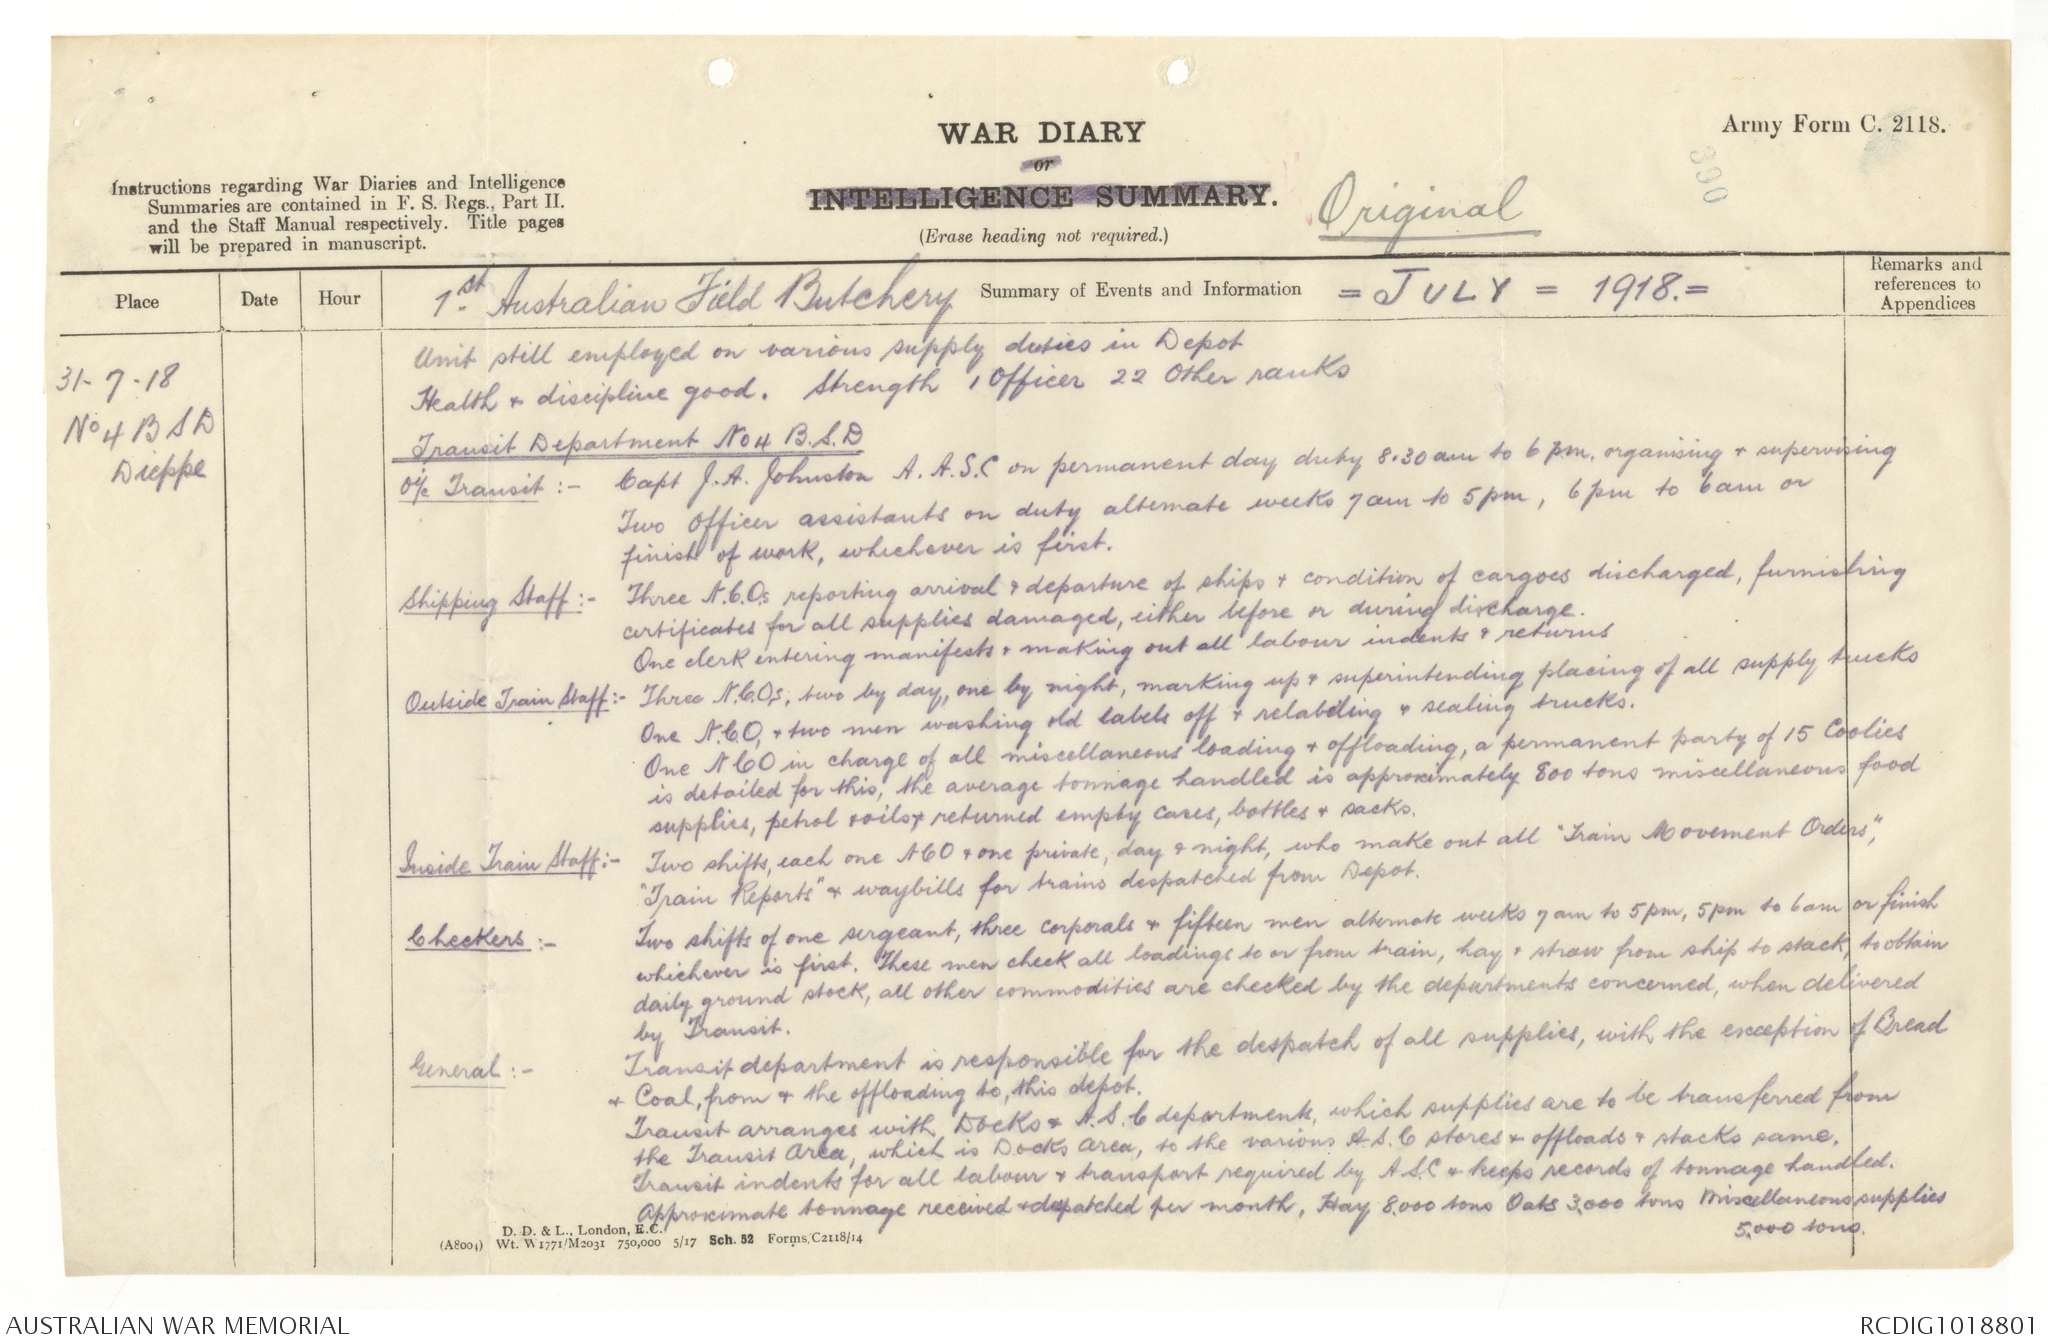 WAR DIARY
or
INTELLIGENCE SUMMARY.
(Erase heading not required.)
Army Form C. 2118.
390
Original
Instructions regarding War Diaries and Intelligence
Summaries are contained in F. S. Regs., Part II.
and the Staff Manual respectively. Title pages
will be prepared in manuscript.
Place
Date
Hour
1st Australian Field Butchery Summary of Events and Information = JULY = 1918. =
Remarks and
references to
Appendices
31-7-18
No 4 B S D
Dieppe
Unit still employed on various supply duties in Depot
Health & discipline good. Strength 1 Officer 22 Other ranks
Transit Department No 4 B.S.D
O/c Transit :- Capt J.A. Johnston A.A.S.C on permanent day duty 8.30am to 6pm, organising & supervising
Two Officer assistants on duty alternate weeks 7am to 5pm, 6pm to 6am or
finish of work, whichever is first.
Shipping Staff :- Three N.C.Os reporting arrival & departure of ships & condition of cargoes discharged, furnishing
certificates for all supplies damaged, either before or during discharge.
One clerk entering manifests & making out all labour indents & returns
Outside Train Staff :- Three N.C.Os, two by day, one by night, marking up & superintending placing of all supply trucks
One N.C.O, & two men washing old labels off & relabeling & sealing trucks.
One N C O in charge of all miscellaneous loading & offloading, a permanent party of 15 Coolies
is detailed for this, the average tonnage handled is approximately 800 tons miscellaneous food
supplies, petrol & oils, & returned empty cases, bottles & sacks.
Inside Train Staff :- Two shifts, each one N C O & one private, day & night, who make out all "Train Movement Orders",
"Train Reports" & waybills for trains despatched from Depot.
Checkers :- Two shifts of one sergeant, three corporals & fifteen men alternate weeks 7am to 5pm, 5pm to 6am or finish
whichever is first. These men check all loadings to or from train, hay & straw from ship to stack, to obtain
daily ground stock, all other commodities are checked by the departments concerned, when delivered
by Transit.
General :- Transit department is responsible for the despatch of all supplies, with the exception of Bread
& Coal, from & the offloading to, this depot.
Transit arranges with Docks & A.S.C departments, which supplies are to be transferred from
the Transit Area, which is Docks Area, to the various A.S.C stores & offloads & stacks same.
Transit indents for all labour & transport required by A.S.C & keeps records of tonnage handled.
Approximate tonnage received & despatched per month, Hay 8,000 tons Oats 3,000 tons Miscellaneous supplies
5,000 tons.
D. D. & L., London, E.C.
(A8004) Wt. W1771/M2031 750,000 5/17 Sch. 52 Forms/C2118/14
AUSTRALIAN WAR MEMORIAL
RCDIG1018801